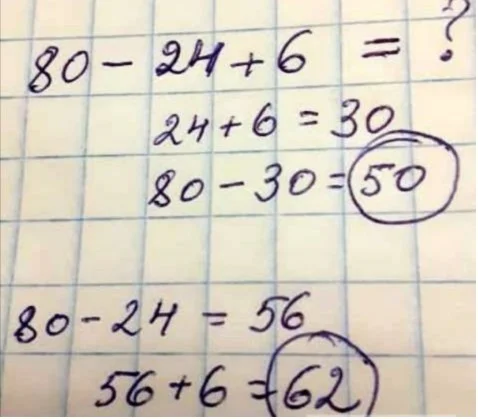 80 - 24 + 6 = ?
24 + 6 = 30
80 - 30 = 50
80 - 24 = 56
56 + 6 = 62